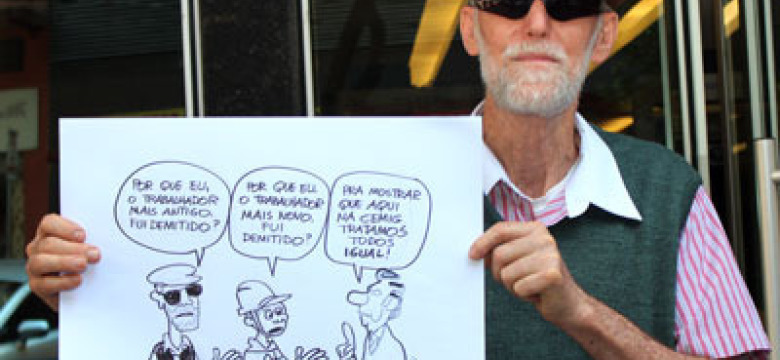 POR QUE EU,
O TRABALHADOR
MAIS ANTIGO,
FUI DEMITIDO?
POR QUE EU
O TRABALHADOR
MAIS NOVO,
FUI
DEMITIDO?
PRA MOSTRAR
QUE AQUI
NA CEMIG
TRATAMOS
TODOS
IGUAL!